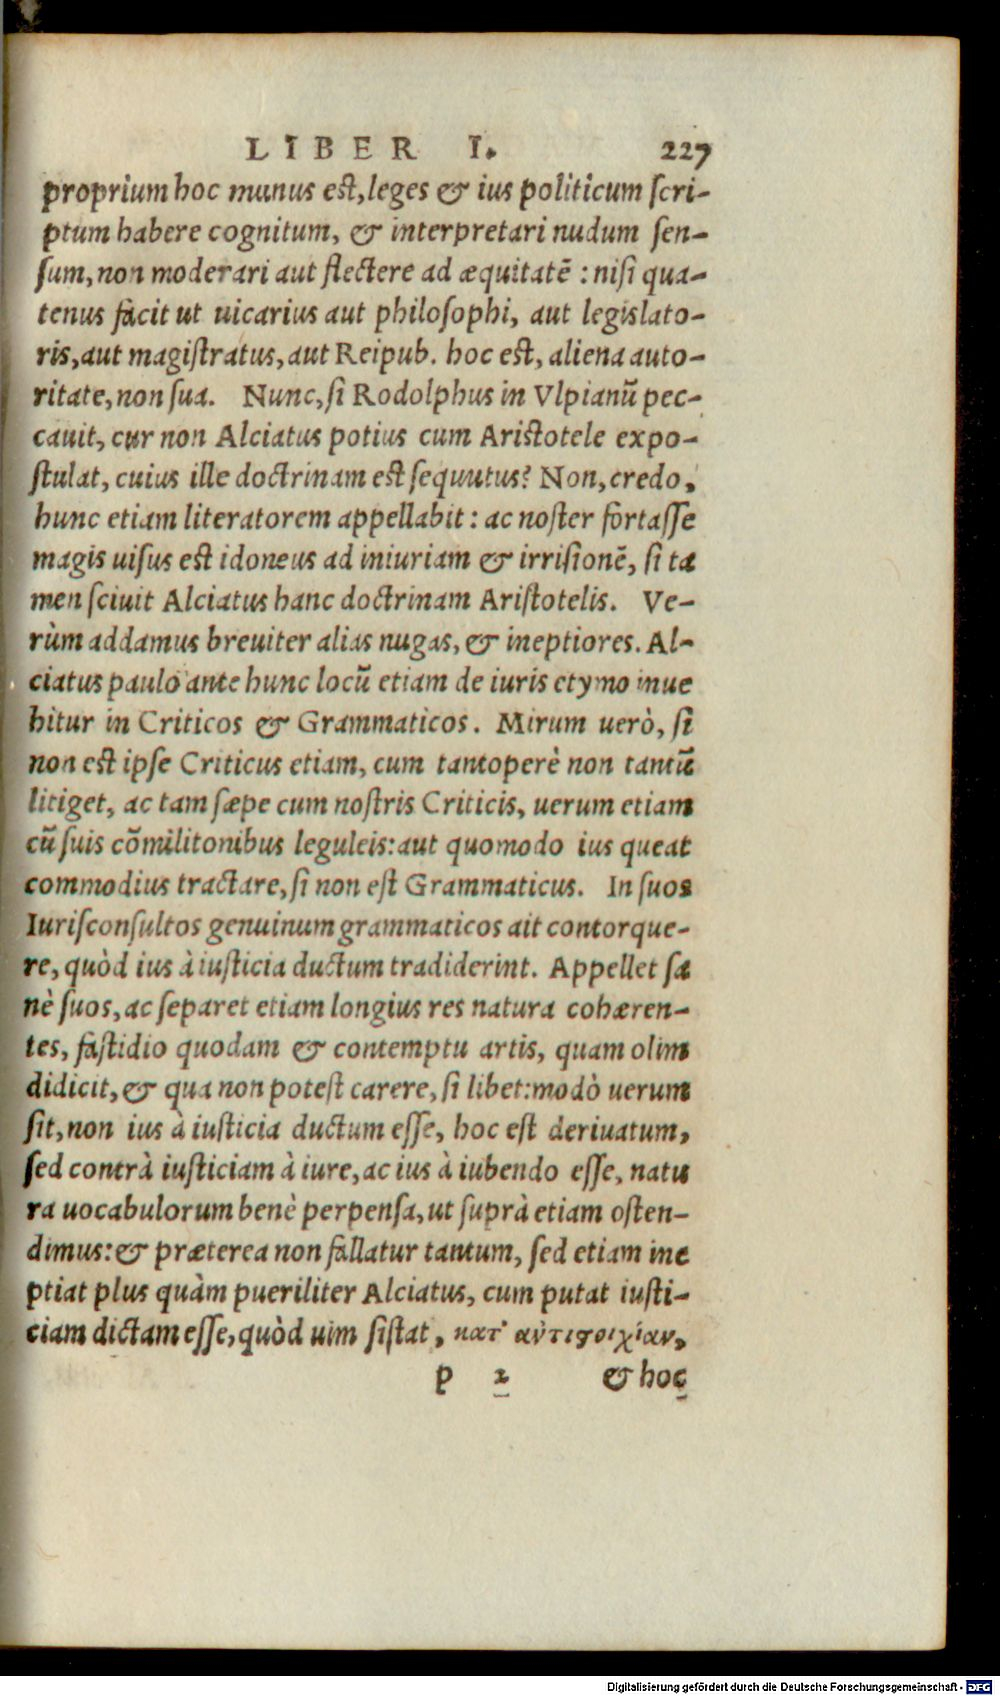 LIBER I. 227
proprium hoc munus est, leges & ius politicum scri-
ptum habere cognitum, & interpretari nudum sen-
sum, non moderari aut flectere ad æquitatē : nisi qua-
tenus facit ut uicarius aut philosophi, aut legislato-
ris, aut magistratus, aut Reipub. hoc est, aliena auto-
ritate, non sua. Nunc, si Rodolphus in Vlpianū pec-
cauit, cur non Alciatus potius cum Aristotele expo-
stulat, cuius ille doctrinam est sequutus? Non, credo,
hunc etiam literatorem appellabit : ac noster fortasse
magis uisus est idoneus ad iniuriam & irrisionē, si ta
men sciuit Alciatus hanc doctrinam Aristotelis. Ve-
rùm addamus breuiter alias nugas, & ineptiores. Al-
ciatus paulò ante hunc locū etiam de iuris etymo inue
hitur in Criticos & Grammaticos. Mirum uerò, si
non est ipse Criticus etiam, cum tantoperè non tantū
litiget, ac tam sæpe cum nostris Criticis, uerum etiam
cū suis cōmilitonibus leguleis: aut quomodo ius queat
commodius tractare, si non est Grammaticus. In suos
Iurisconsultos genuinum grammaticos ait contorque-
re, quòd ius à iusticia ductum tradiderint. Appellet sa
nè suos, ac separet etiam longius res natura cohæren-
tes, fastidio quodam & contemptu artis, quam olim
didicit, & qua non potest carere, si libet: modò uerum
sit, non ius à iusticia ductum esse, hoc est deriuatum,
sed contrà iusticiam à iure, ac ius à iubendo esse, natu
ra uocabulorum benè perpensa, ut suprà etiam osten-
dimus: & præterea non fallatur tantum, sed etiam ine
ptiat plus quàm pueriliter Alciatus, cum putat iusti-
ciam dictam esse, quòd uim sistat, κατ' αὐτιϛοιχίαν,
p 2 & hoc
Digitalisierung gefördert durch die Deutsche Forschungsgemeinschaft - DFG